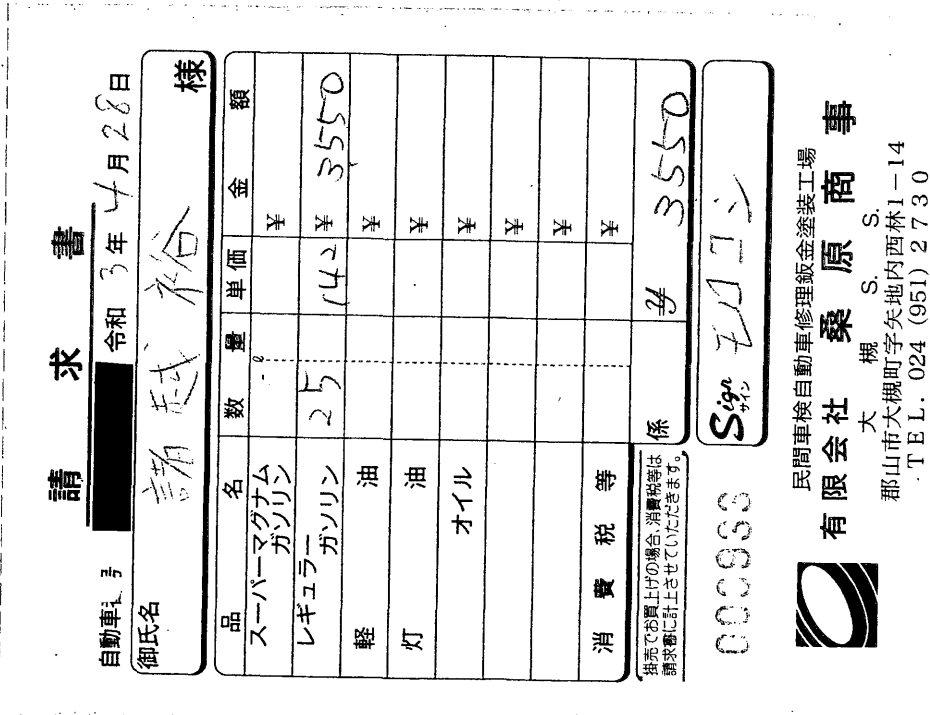 請求書
自動車 令和 3年 4月 28日
御氏名 様
品名 数量 単価 金額
スーパーマグナムガソリン ℓ ¥
レギュラーガソリン 25 142 ¥ 3550
軽油 ¥
灯油 ¥
オイル ¥
¥
¥
消費税等 ¥
掛売でお買上げの場合、消費税等は
請求書に計上させていただきます。
係 ¥ 3550
000963
Sign サイン モロコシ
民間車検自動車修理鈑金塗装工場
有限会社 桑原商事
大槻 S. S.
郡山市大槻町字矢地内西林1-14
TEL. 024 (951) 2730